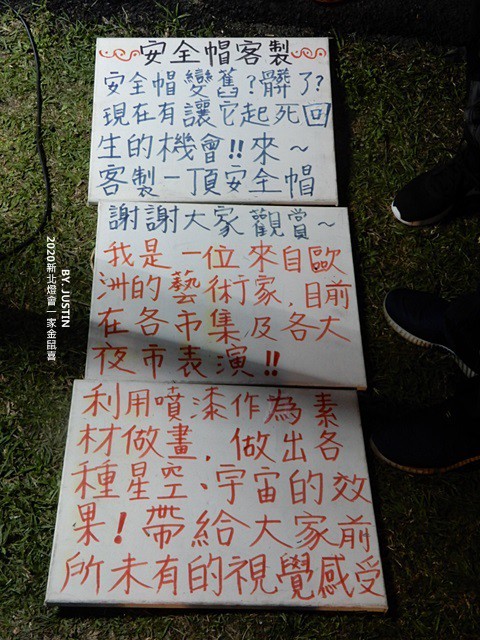 安全帽客製
安全帽變舊?髒了?
現在有讓它起死回
生的機會!!來~
客製一頂安全帽
謝謝大家觀賞~
我是一位來自歐
洲的藝術家,目前
在各市集及各大
夜市表演!!
利用噴漆作為素
材做畫,做出各
種星空、宇宙的效
果!帶給大家前
所未有的視覺感受
BY. JUSTIN
2020新北燈會一家金鼠喜